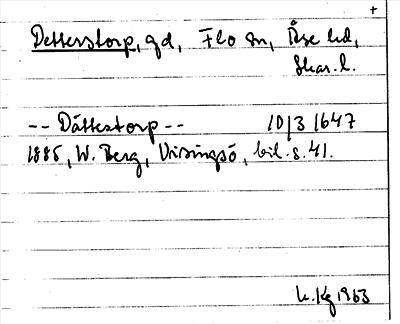 +
Detterstorp, gd, Flo sn, Åse hd,
Skar. l.
-- Dättestorp -- 10/3 1647
1885, W. Berg, Visingsö, bil. s. 41.
1963